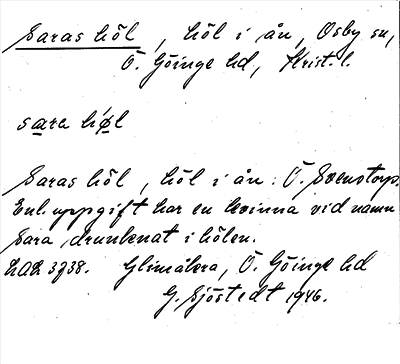 Saras höl, höl i ån, Osby sn,
Ö. Göinge hd, Krist. l.
sara hø̄l
Saras höl, höl i ån: Ö. Svenstorp.
Enl. uppgift har en kvinna vid namn
Sara drunknat i hölen.
LAL 3238. Glimåkra, Ö. Göinge hd
G. Sjöstedt 1946.